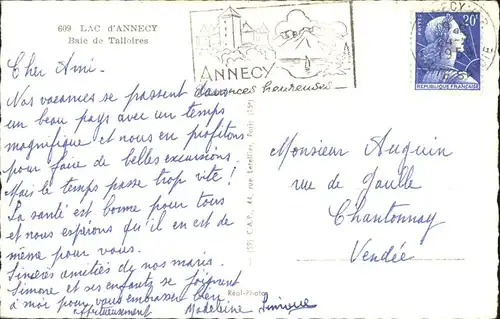 609 LAC d'ANNECY
Baie de Talloires
ANNECY
vacances heureuses
20F
POSTES
REPUBLIQUE FRANÇAISE
Cher Ami.
Nos vacances se passent dans
un beau pays avec un temps
magnifique et nous en profitons
pour faire de belles excursions.
Mais le temps passe trop vite !
La santé est bonne pour tous
et nous espérons qu'il en est de
même pour vous.
Sincères amitiés de nos maris.
Simone et ses enfants se joignent
à moi pour vous embrasser bien
affectueusement Madeleine
Réal-Photo
C.A.P., 44, rue Letellier, Paris
Monsieur Auguin
rue de Gaulle
Chantonnay
Vendée